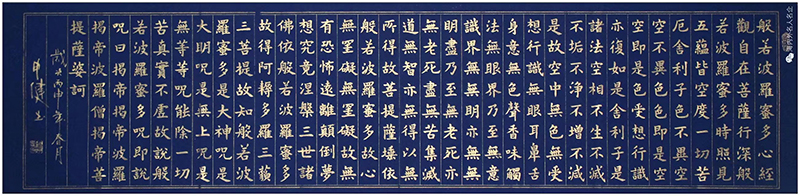 般若波羅蜜多心經
觀自在菩薩行深般
若波羅蜜多時照見
五蘊皆空度一切苦
厄舍利子色不異空
空不異色色即是空
空即是色受想行識
亦復如是舍利子是
諸法空相不生不滅
不垢不淨不增不減
是故空中無色無受
想行識無眼耳鼻舌
身意無色聲香味觸
法無眼界乃至無意
識界無無明亦無無
明盡乃至無老死亦
無老死盡無苦集滅
道無智亦無得以無
所得故菩提薩埵依
般若波羅蜜多故心
無罣礙無罣礙故無
有恐怖遠離顛倒夢
想究竟涅槃三世諸
佛依般若波羅蜜多
故得阿耨多羅三藐
三菩提故知般若波
羅蜜多是大神咒是
大明咒是無上咒是
無等等咒能除一切
苦真實不虛故說般
若波羅蜜多咒即說
咒曰揭帝揭帝波羅
揭帝波羅僧揭帝菩
提薩婆訶
歲次丙申年春月